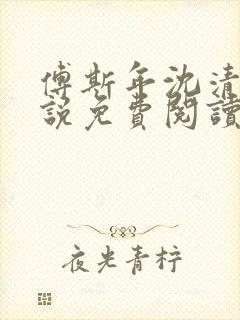 傅斯年沈清
說免費閱讀
夜光青柠